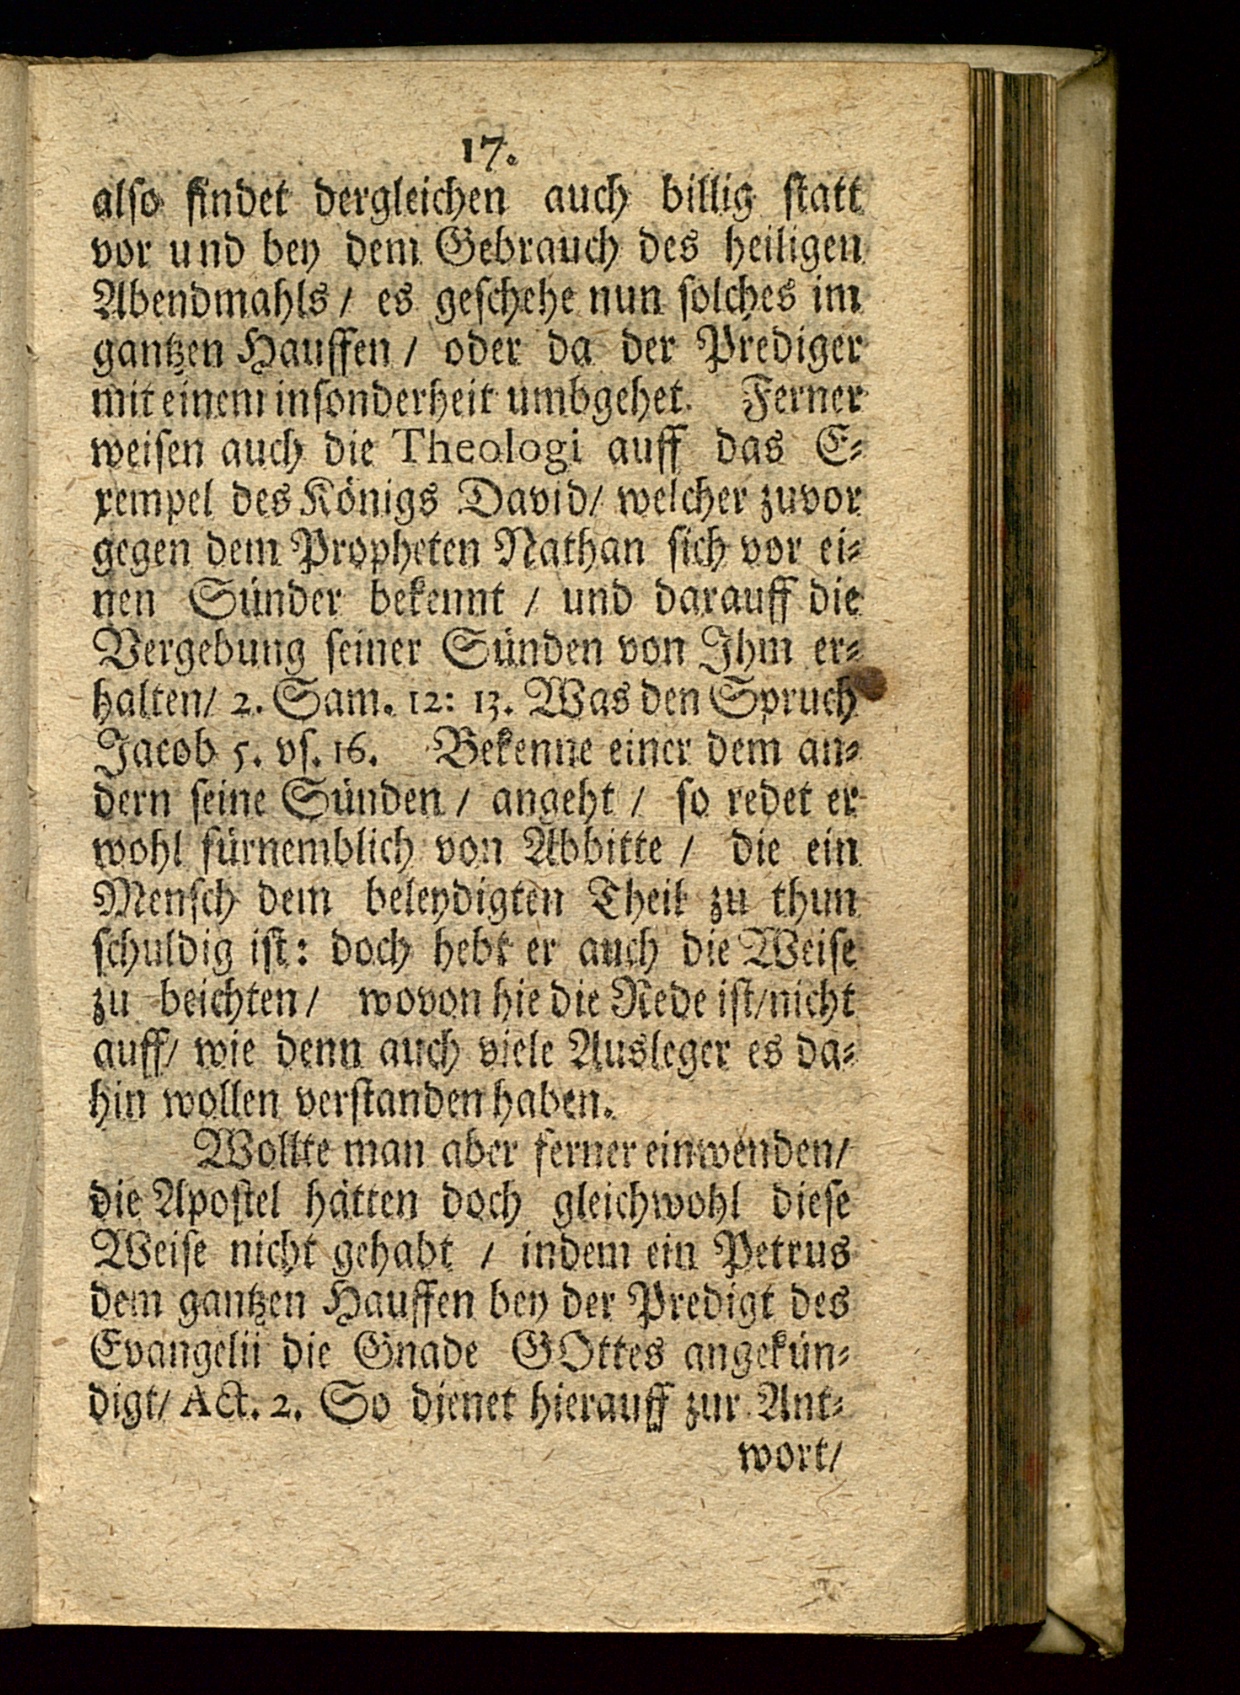 17.
also findet dergleichen auch billig statt
vor und bey dem Gebrauch des heiligen
Abendmahls / es geschehe nun solches im
gantzen Hauffen / oder da der Prediger
mit einem insonderheit umbgehet. Ferner
weisen auch die Theologi auff das E-
xempel des Königs David/ welcher zuvor
gegen dem Propheten Nathan sich vor ei-
nen Sünder bekennt / und darauff die
Vergebung seiner Sünden von Ihm er-
halten/ 2. Sam. 12: 13. Was den Spruch
Jacob 5. vs. 16. Bekenne einer dem an-
dern seine Sünden / angeht / so redet er
wohl fürnemblich von Abbitte / die ein
Mensch dem beleydigten Theil zu thun
schuldig ist: doch hebt er auch die Weise
zu beichten/ wovon hie die Rede ist/nicht
auff/ wie denn auch viele Ausleger es da-
hin wollen verstanden haben.
Wollte man aber ferner einwenden/
die Apostel hätten doch gleichwohl diese
Weise nicht gehabt / indem ein Petrus
dem gantzen Hauffen bey der Predigt des
Evangelii die Gnade GOttes angekün-
digt/ Act. 2. So dienet hierauff zur Ant-
wort/